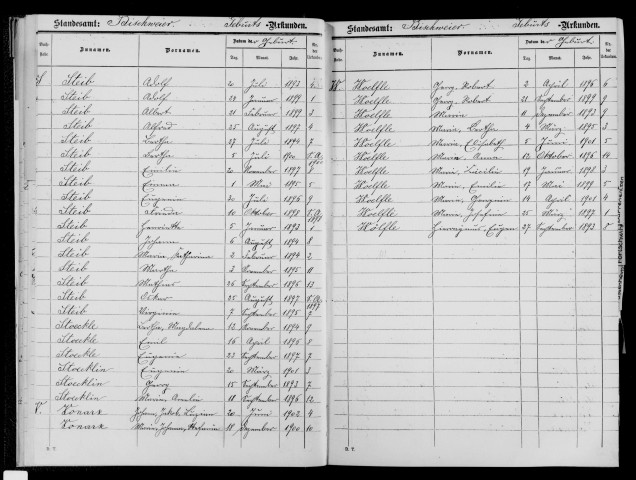 Standesamt: Bischweier. Geburts-Urkunden.
Zunamen. Vornamen. Datum der Geburt Nr. der Urkunden.
Tag. Monat. Jahr.
St Steib Adolf 20 Juli 1893
Steib Adolf 24 Januar 1899 1
Steib Albert 21 Februar 1899 3
Steib Alfred 25 August 1897 4
Steib Bertha 27 Juli 1894 7
Steib Bertha 5 Juli 1900
Steib Emilie 20 November 1897 9
Steib Emma 1 Mai 1895 5
Steib Eugenie 20 Juli 1896 9
Steib 10 Oktober 1898
Steib Henriette 5 Januar 1893 1
Steib Johann 6 August 1894 8
Steib Maria Katharina 2 Februar 1894 2
Steib Martha 2 November 1895 11
Steib Mathias 26 September 1896 13
Steib Oskar 25 August 1897
Steib Virginie 7 September 1895 7
Stoeckle Bertha, Magdalena 12 November 1894 9
Stoeckle Emil 16 April 1896 8
Stoeckle Eugenie 23 September 1897 7
Stoecklin Eugenie 20 März 1901 3
Stoecklin Georg 15 September 1893 7
Stoecklin Maria Amelie 18 September 1896 12
Konark Johann Jakob Luzian 20 Juni 1902 4
Konark Maria Johanna Stefanie 18 Dezember 1900 10
D. 7.
Standesamt: Bischweier. Geburts-Urkunden.
Zunamen. Vornamen. Datum der Geburt Nr. der Urkunden.
Tag. Monat. Jahr.
W. Woelfle Georg Robert 2 April 1896 6
Woelfle Georg Robert 21 September 1899 9
Woelfle Maria 11 Dezember 1893 9
Woelfle Maria Bertha 4 März 1895 3
Woelfle Maria Elisabeth 5 Juni 1901 5
Woelfle Maria Anna 12 Oktober 1896 14
Woelfle Maria Luzilia 19 Januar 1898 2
Woelfle Maria Emilie 17 Mai 1899 5
Woelfle Maria Georgine 14 April 1901 4
Woelfle Maria Josefine 25 März 1897 1
Wölfle Eugen 27 September 1893 8
D. 7.